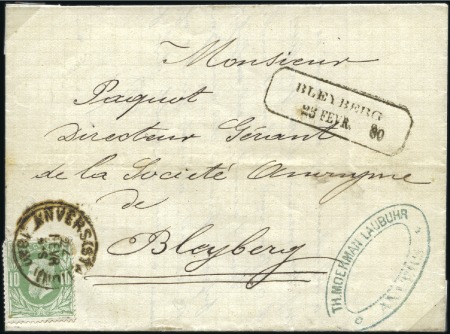 Monsieur
BLEYBERG
23 FEVR. 80
Paquot
Directeur Gérant
de la Société Anonyme
de
Bleyberg
ANVERS
TH. MOERMAN LAUBUHR